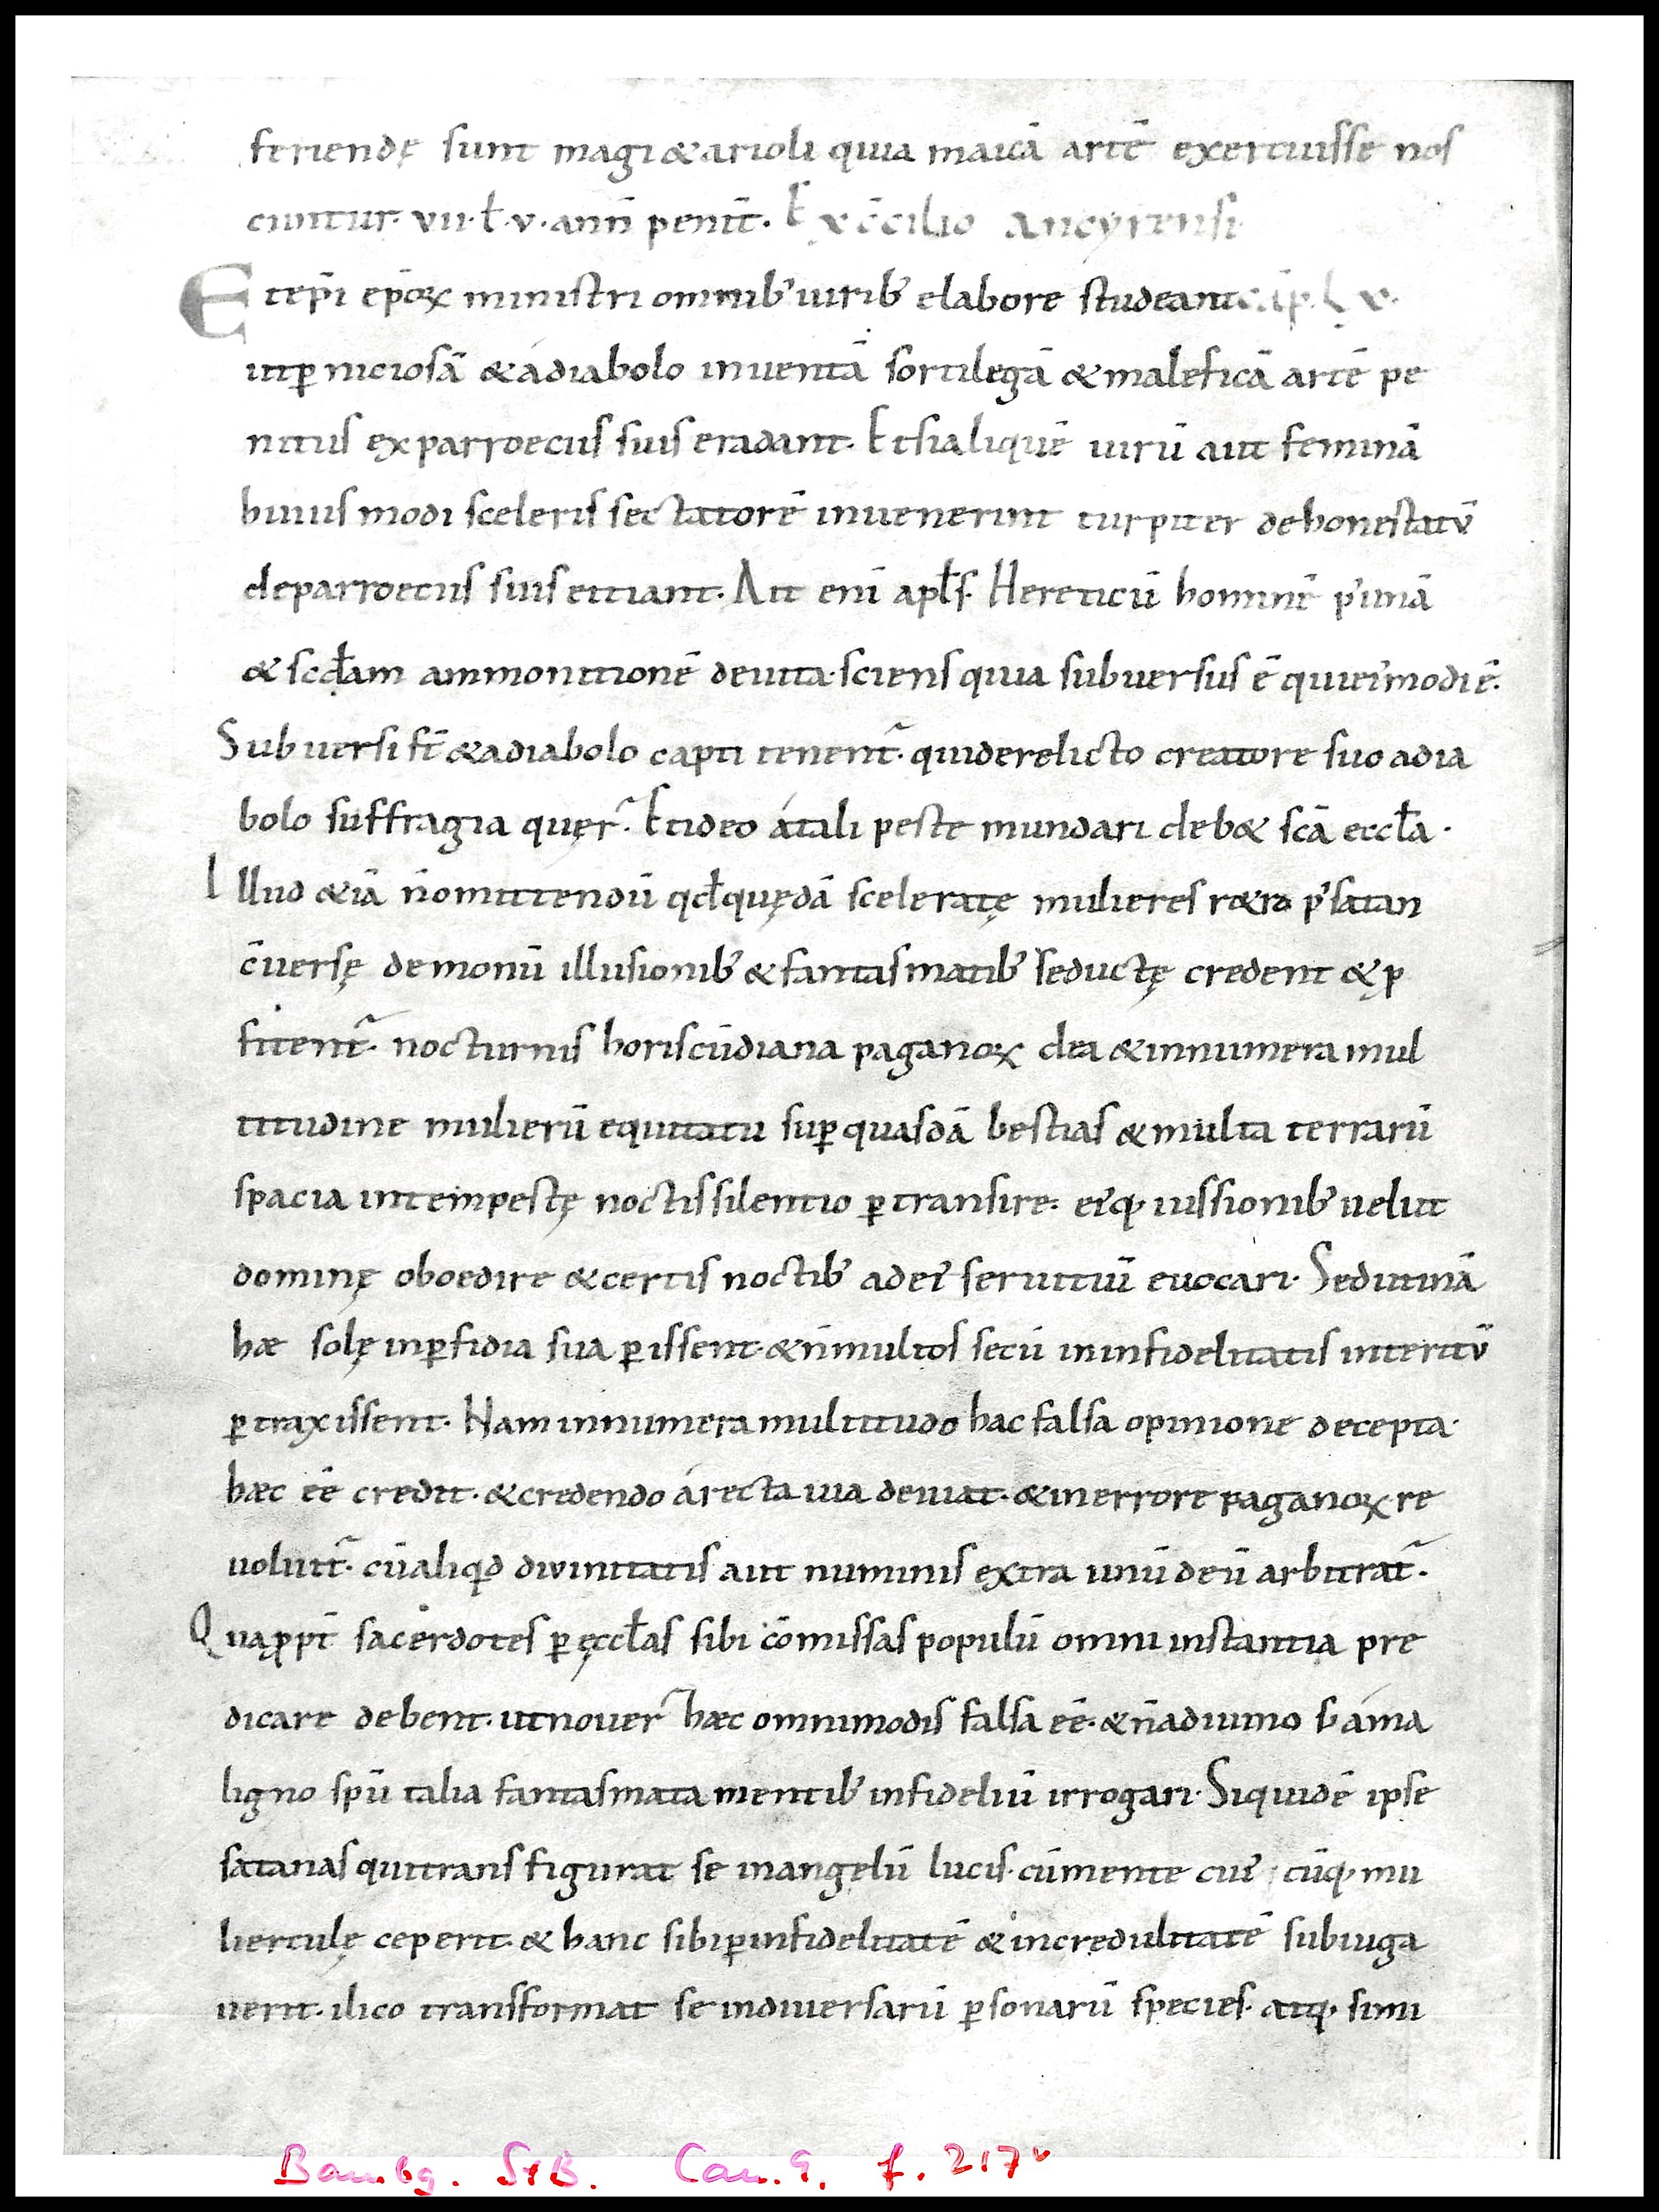 feriendę sunt magi & arioli quia maicā artē exercuisse nos
cuntur. vii. ł. v. anñ penit̄. Ex c̄cilio ancyrensi
Et ep̄i ep̄oꝝ ministri omnibꝰ uiribꝰ elabore studeant cap̄.
ut ꝑniciosā & á diabolo inuentā sortilegā & maleficā artē pe
nitus ex parroeciis suis eradant. Et si aliquē uirū aut feminā
huius modi sceleris sectatorē inuenerint turpiter dehonestatū
de parroeciis suis eitiant. Ait eni ̄ apƚs. Hereticū hominē p̄ unā
& scdam ammonitionē deuita. sciens quia subuersus ē qui ei᾿modi ē.
Subuersi st̄ & a diabolo capti tenent᷑. qui derelicto creatore suo a dia
bolo suffragia quęr᷑. Et ideo á tali peste mundari deb& scā eccƚa.
Illud &iā ñ omittendū qđ quędā sceleratę mulieres r&ro p᾿ satan
c̄uersę demonū illusionibꝰ & fantasmatibꝰ seductę credent & ꝓ
fitent᷑. nocturnis horis cū diana paganoꝝ dea & innumera mul
titudine mulierū equitatu suꝑ quasdā bestias & multa terrarū
spacia intempestę noctis silentio ꝑtransire. ei᾿q. iussionibꝰ uelut
dominę oboedire & certis noctibꝰ ad ei᾿ seruitiū euocari. Sed utinā
hae solę in ꝑfidia sua ꝑissent. & ñ multos secū in infidelitatis interitū
ꝑtraxissent. Nam innumera multitudo hac falsa opinione decepta.
hæc eē credit. & credendo á recta uia deuiat. & in errore paganoꝝ re
uoluit᷑. cū aliqd diuinitatis aut numinis extra unū deū arbitrat᷑.
Quaꝓpt̄ sacerdotes ꝑ ęccƚas sibi c̄omissas populū omni instantia pre
dicare debent. ut nouer᷑ hæc omnimodis falsa eē. & ñ a diuino s; á ma
ligno spū talia fantasmata mentibꝰ infideliū irrogari. Siquidē ipse
satanas qui transfigurat se in angelū lucis. cū mente cui᾿cūq. mu
lierculę ceperit. & hanc sibi ꝑ infidelitatē & incredulitatē subiuga
uerit. ilico transformat se in diuersarū ꝑsonarū species. atq. simi
Bambg. StB. Can. 9. f. 217v